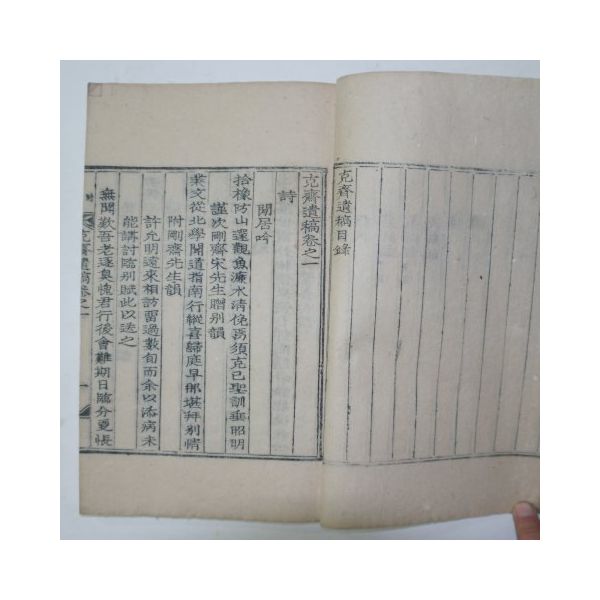 克齋遺稿目錄
克齋遺稿卷之一
詩
閒居吟
拾橡防山還觀魚濂水淸俛焉須克己聖訓垂昭明
謹次剛齋宋先生贈別韻
業文從北學聞道指南行縱喜歸庭早那堪拜別情
附剛齋先生韻
許允明遠來相訪留過數旬而余以添病未
能講討臨別賦此以送之
無聞歎吾老逐臭愧君行後會難期日臨分更悵
克齋遺稿卷之一
一